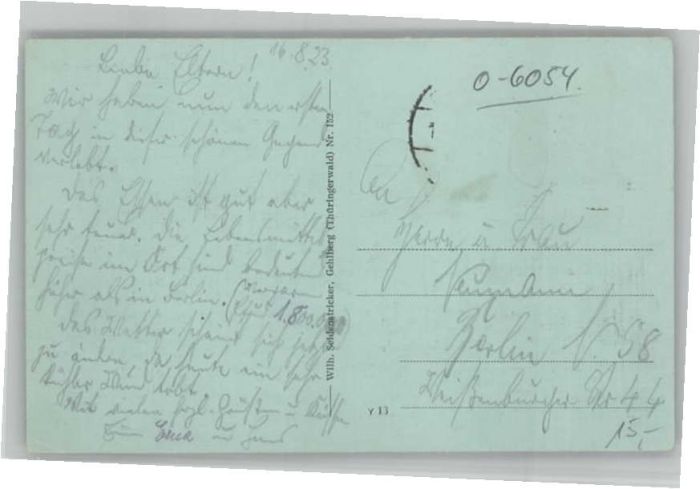 16.8.23.
Liebe Eltern!
Wir haben nun den ersten
Tag in dieser schönen Gegend
verlebt.
Das Essen ist gut aber
sehr teuer. Die Lebensmittel
preise im Ort sind bedeutend
höher als in Berlin. (Margarine
Pfund 1.800.000)
Das Wetter scheint sich
zu ändern, da heute ein sehr
kühler Wind
Mit vielen herzl. Grüßen u. Küssen
Erna
Wilh. Seidenstricker, Gehlberg (Thüringerwald) Nr. 152
0-6054.
An
Herrn u. Frau
Neumann,
Berlin N. 58
Weißenburger Str 44
Y 13
15,-